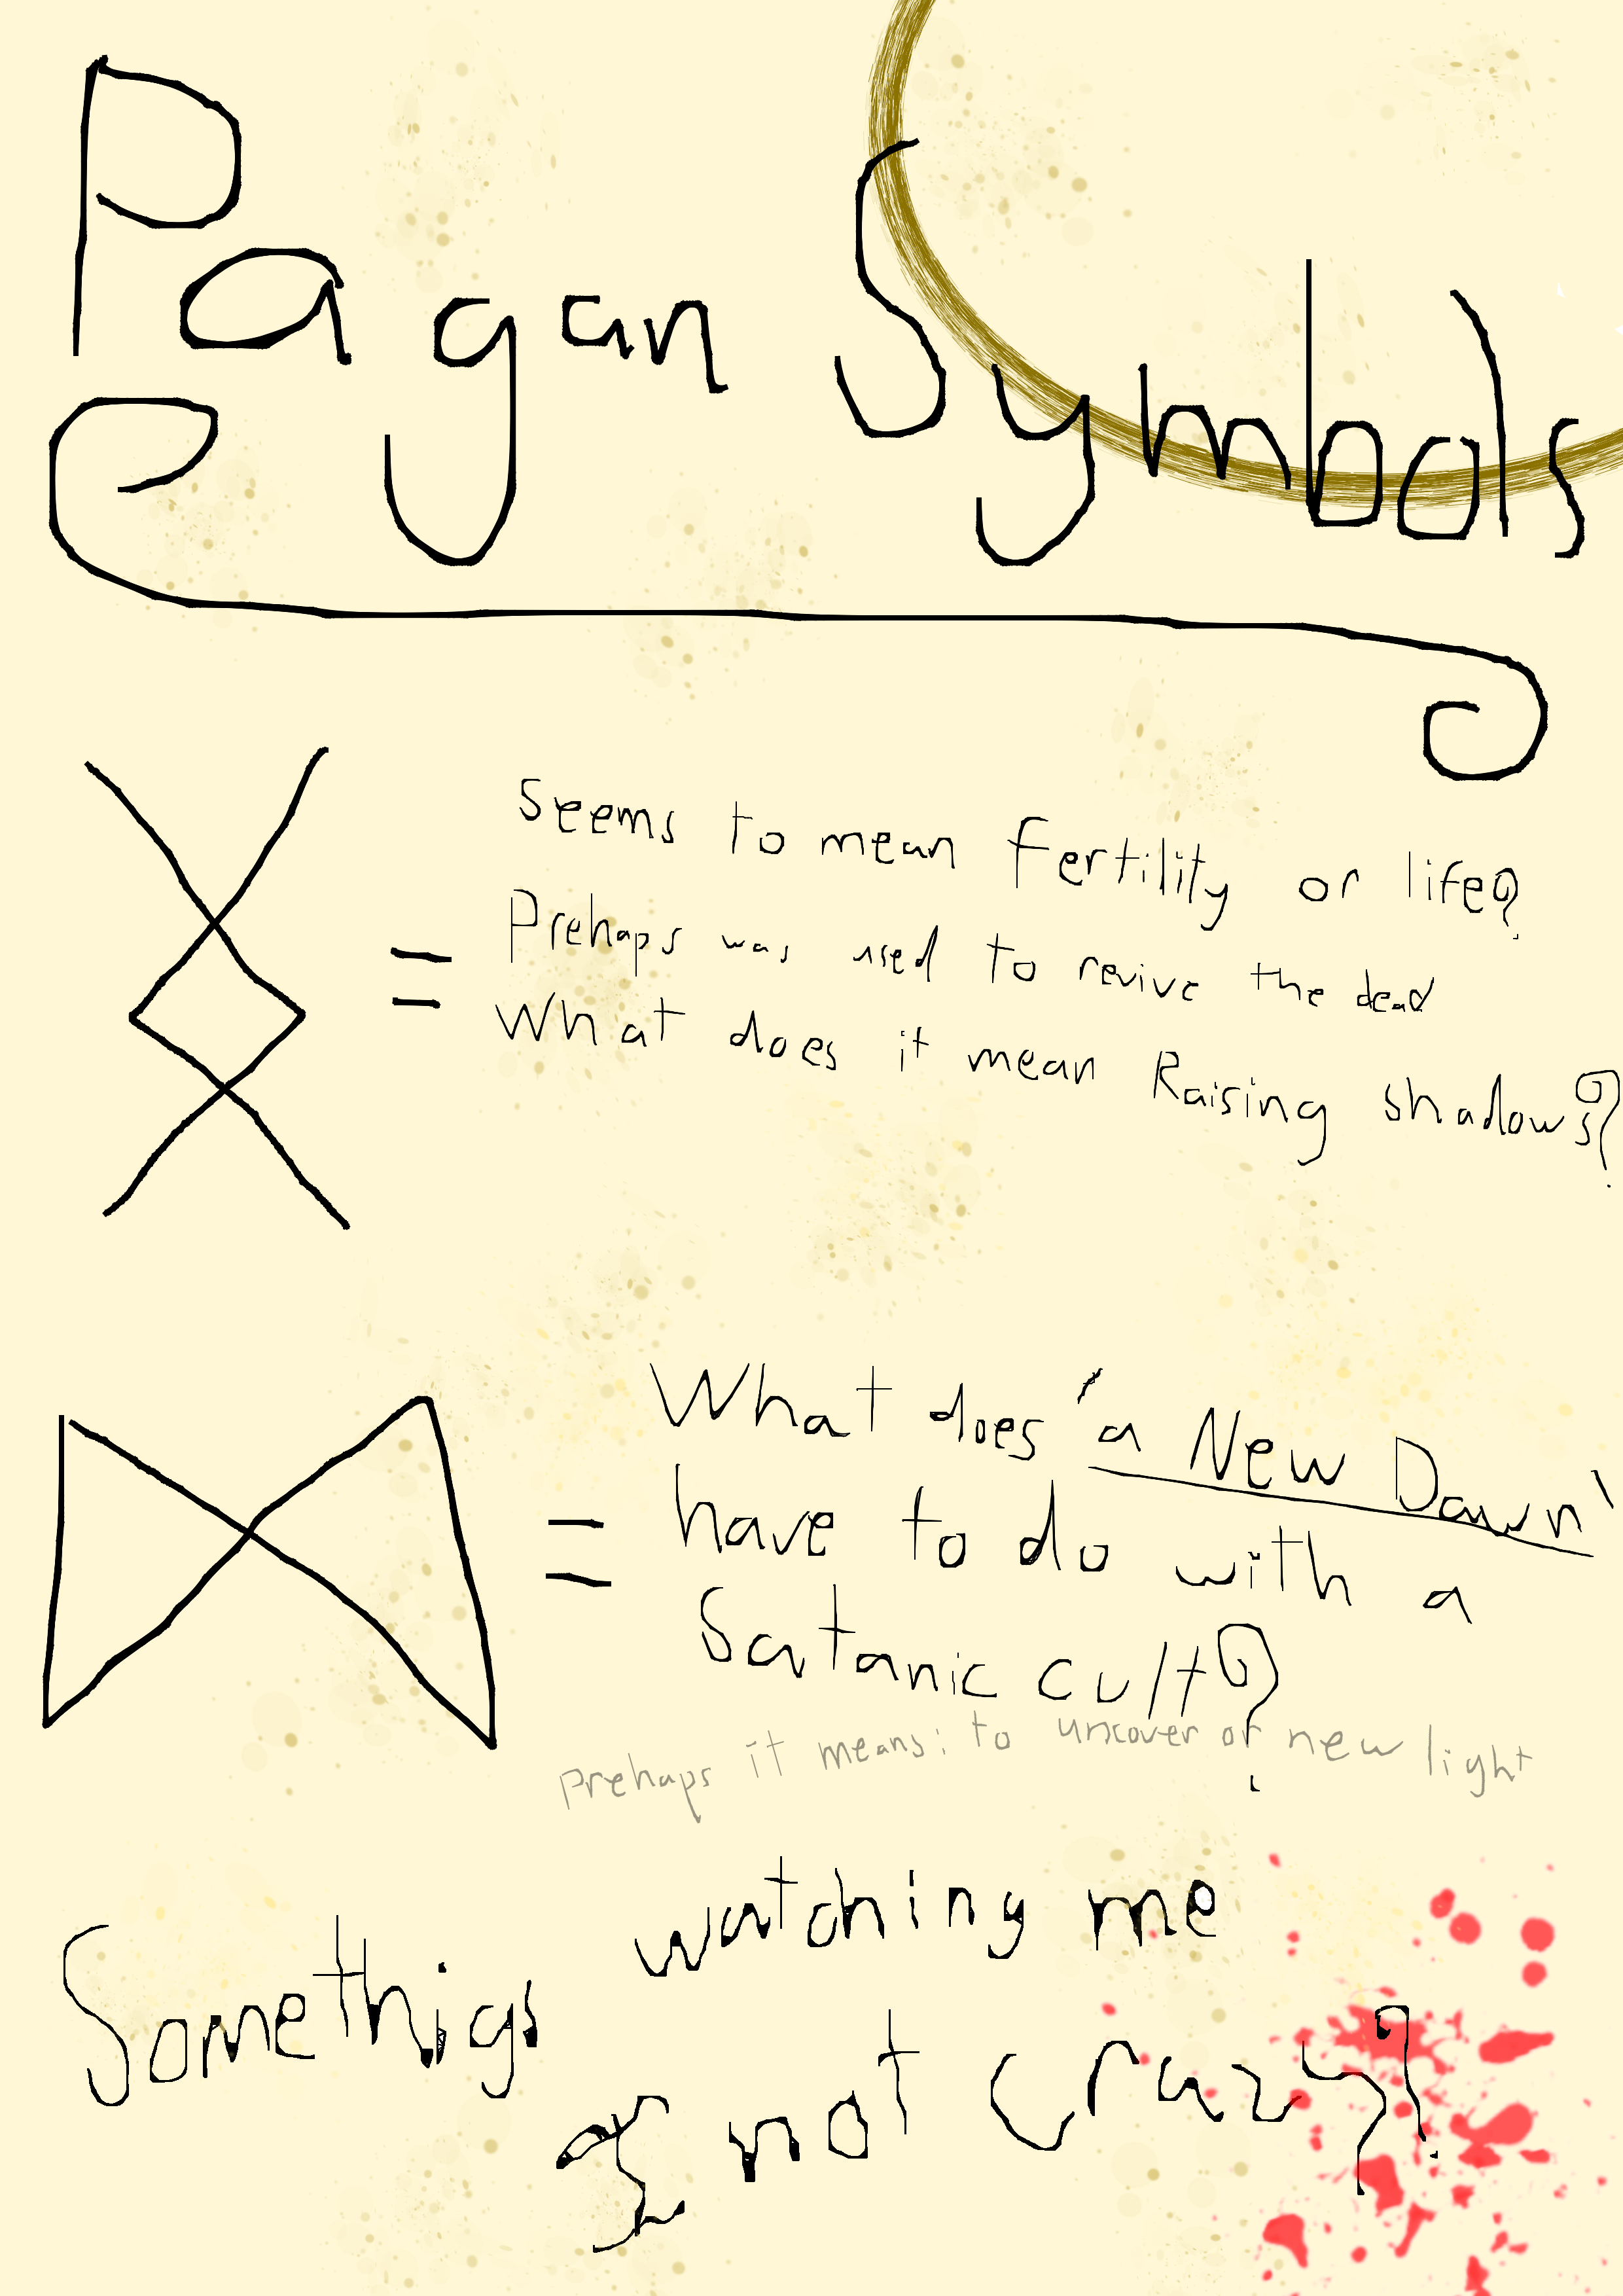 Pagan Symbols
= seems to mean fertility or life?
Prehaps was used to revive the dead
What does it mean Raising shadows?
= What does 'a New Dawn'
have to do with a
Satanic cult?
Prehaps it means: to uncover or new light
Somethigs watching me
I not crazy?